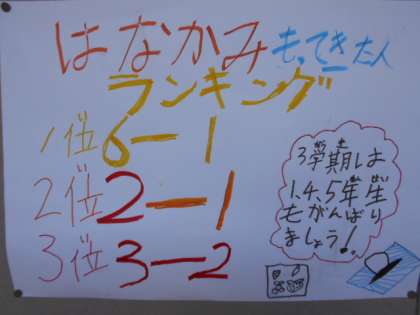 はなかみもってきた人
ランキング
1位 6-1
2位 2-1
3位 3-2
3学期は
1.4.5年生
もがんばり
ましょう!